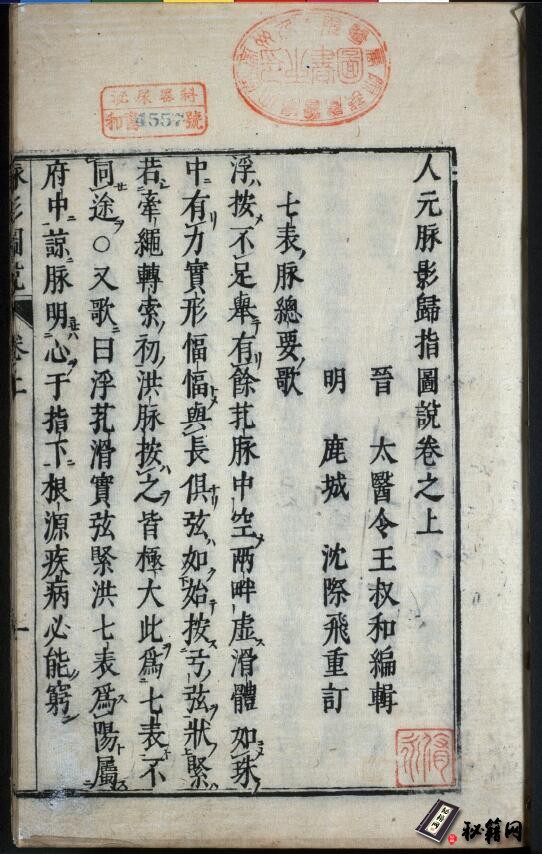 人元脉影歸指圖說卷之上
晉　太醫令王叔和編輯
明　鹿城　沈際飛重訂
七表脉總要歌
浮按不足舉有餘芤脉中空兩畔虛滑體如珠
中有力實形愊愊與長俱弦如始按弓弦狀緊
若牽繩轉索初洪脉按之皆極大此爲七表不
同途○又歌曰浮芤滑實弦緊洪七表爲陽屬
府中諒脉明心于指下根源疾病必能窮
脉影圖說　卷上　一
泌尿器科
和書4557號
秘籍网